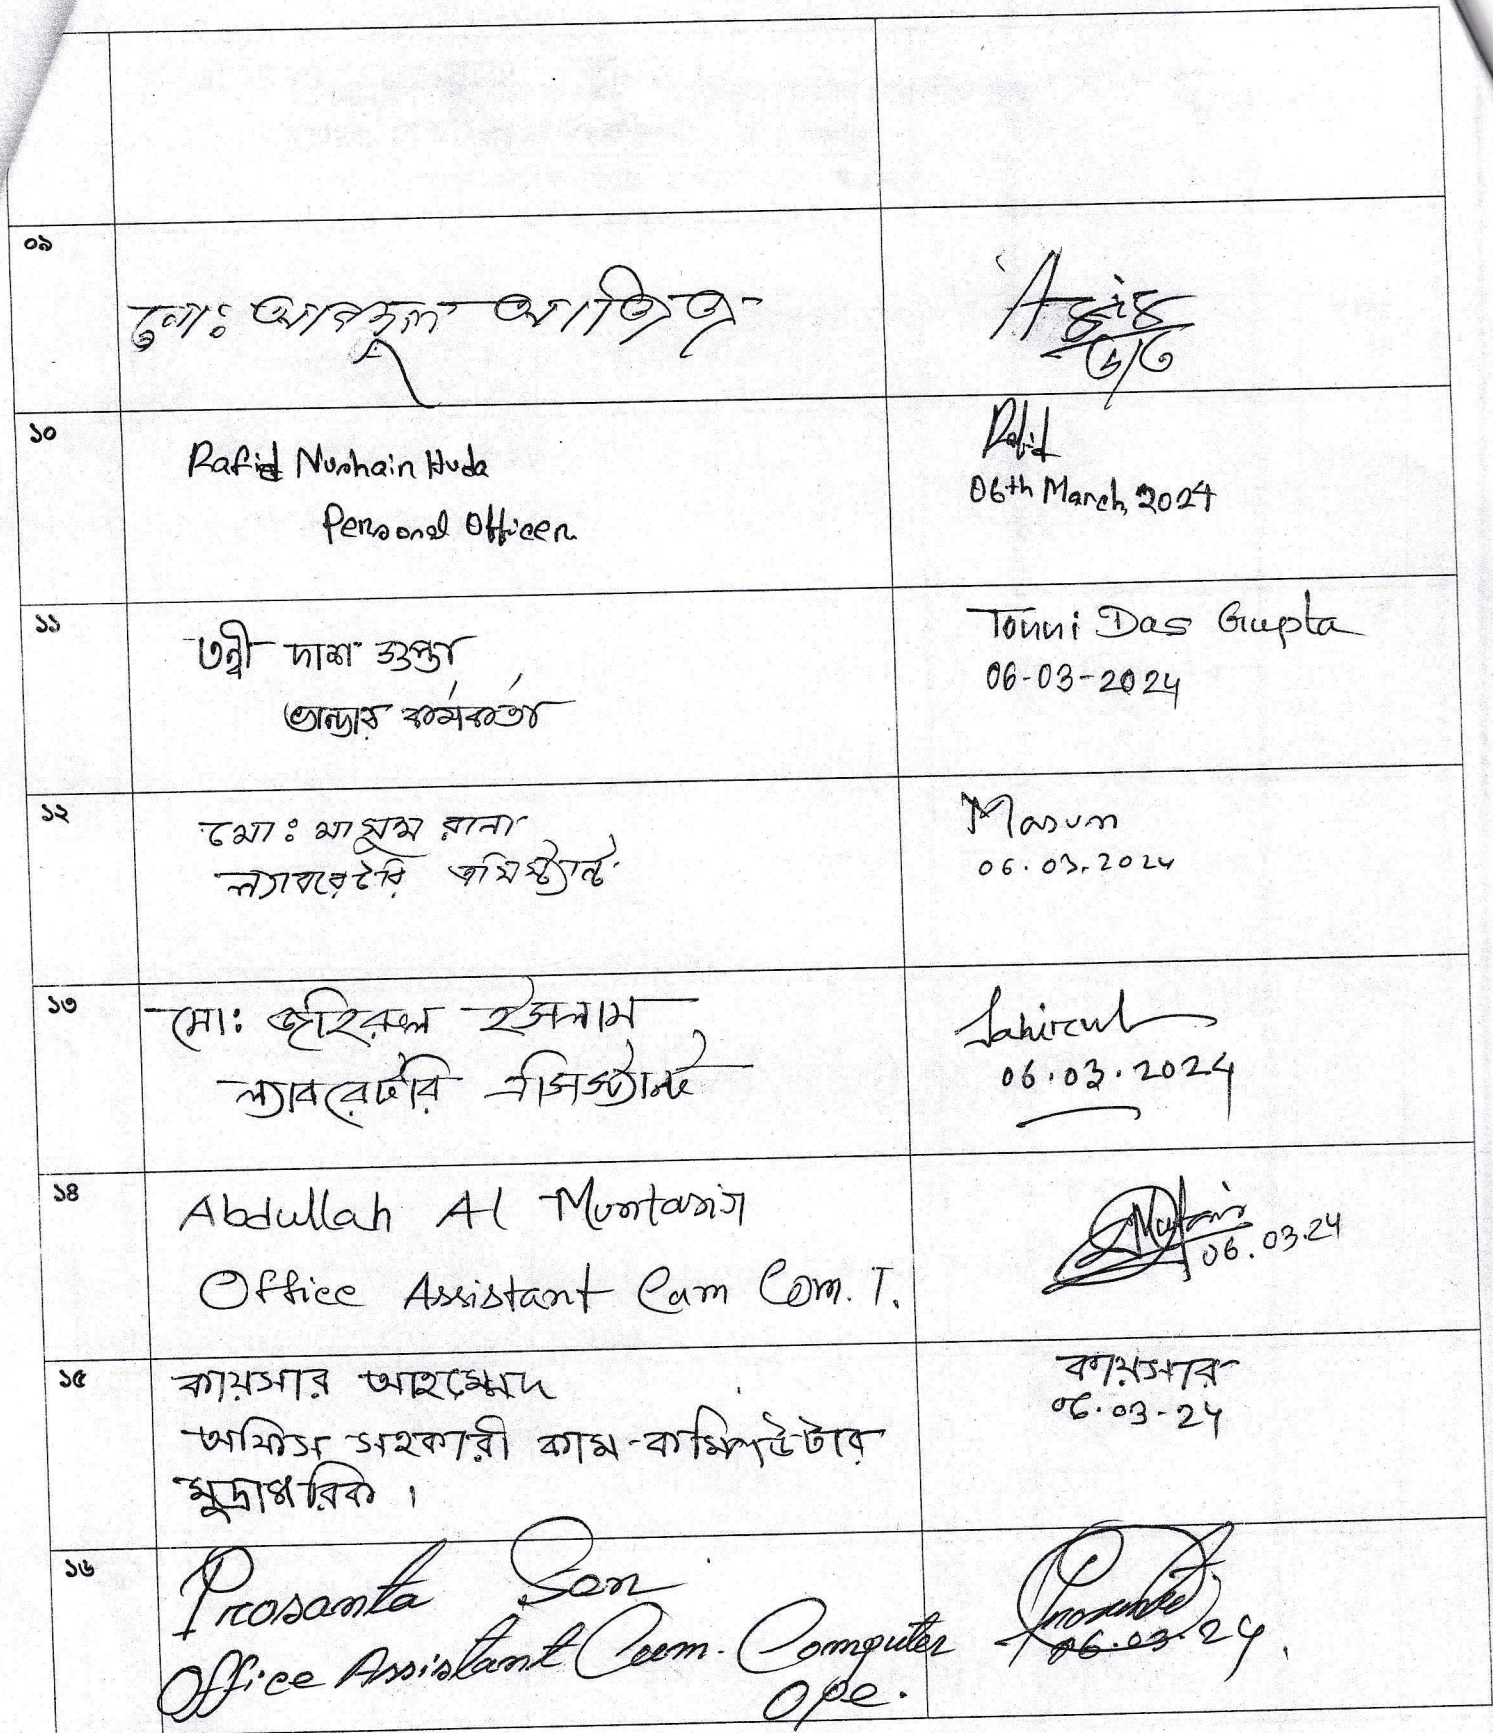 ০৯
মোঃ আবদুল আজিজ
Aziz
৬/৩
১০
Rafid Nushain Huda
Personal Officer
Rafid
06th March, 2024
১১
তন্বী দাশ গুপ্তা
ভান্ডার কর্মকর্তা
Tonni Das Gupta
06-03-2024
১২
মোঃ মাসুম রানা
ল্যাবরেটরি এসিস্ট্যান্ট
Masum
06.03.2024
১৩
মো: জহিরুল ইসলাম
ল্যাবরেটরি এসিস্ট্যান্ট
Jahirul
06.03.2024
১৪
Abdullah Al Muntasir
Office Assistant Cum Com. T.
06.03.24
১৫
কায়সার আহম্মেদ
অফিস সহকারী কাম-কম্পিউটার
মুদ্রাক্ষরিক।
কায়সার
06.03-24
১৬
Prosanta Sen
Office Assistant Cum. Computer
Ope.
Prosanta
06.03.24.